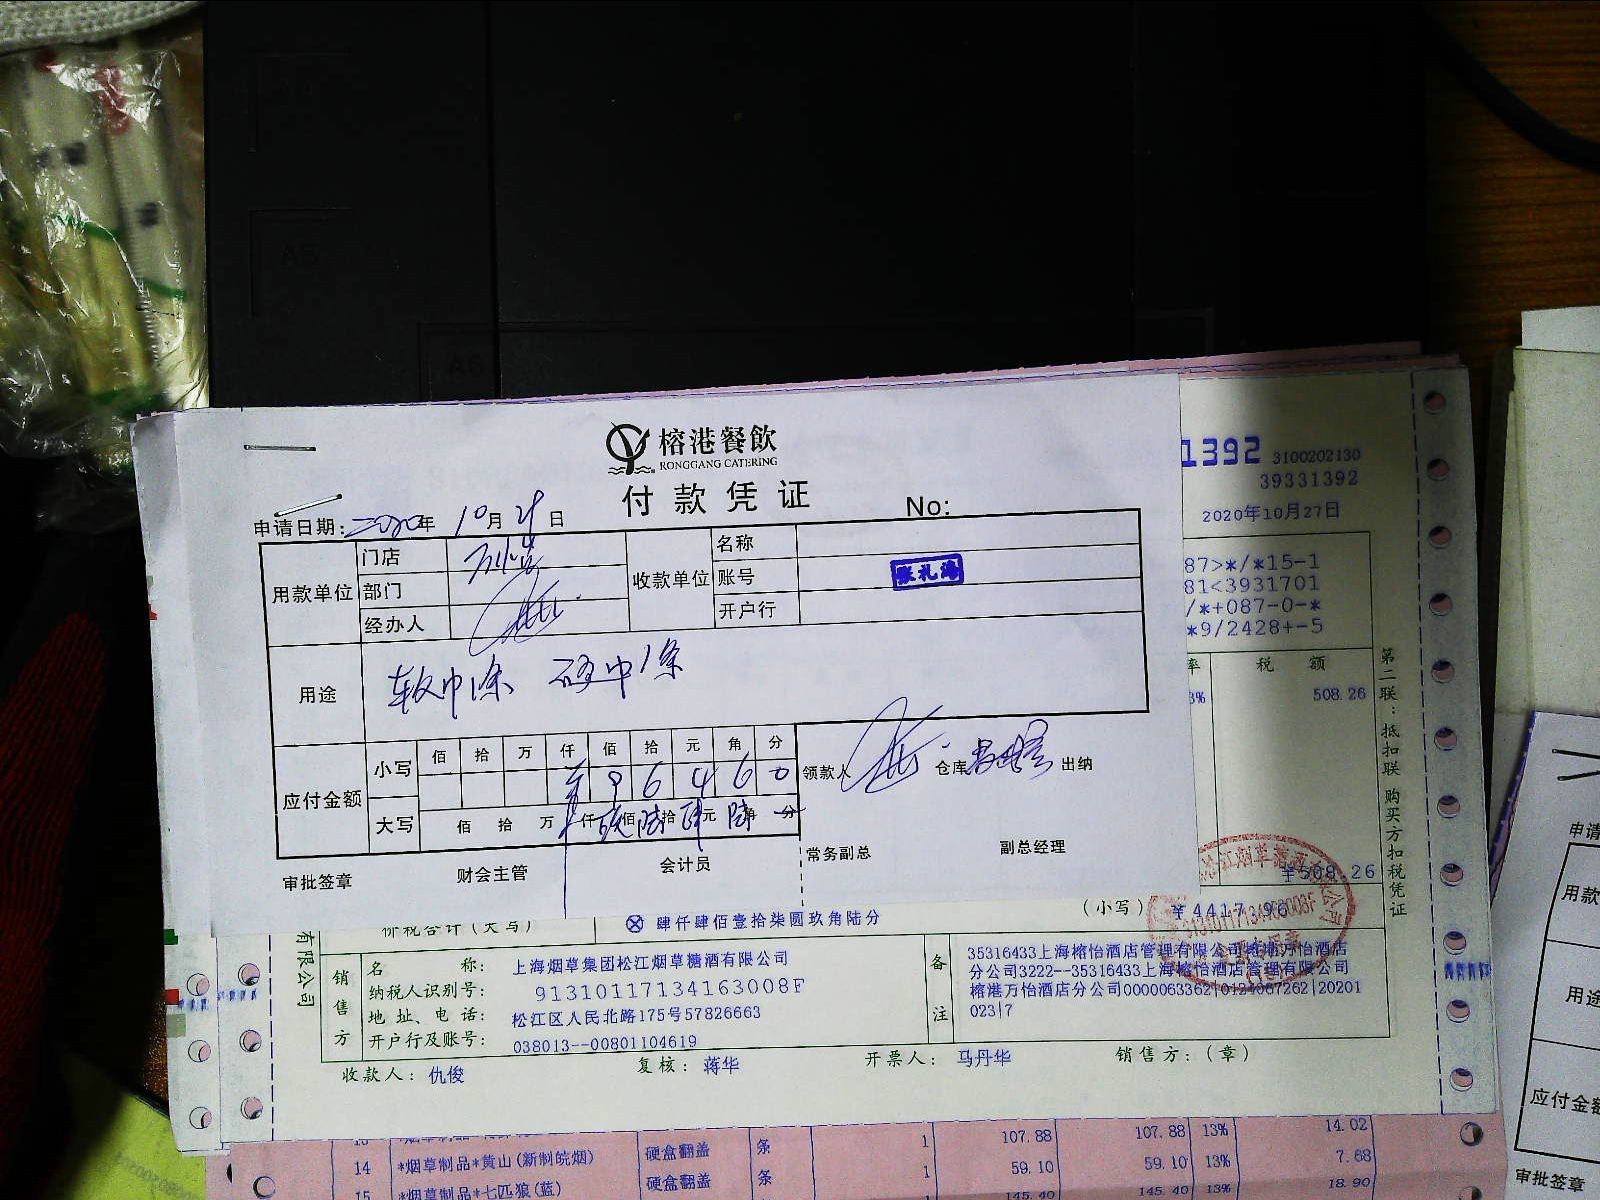 榕港餐飲
RONGGANG CATERING
付款凭证
No:
申请日期: 2020年 10月 日
用款单位
门店
部门
经办人
收款单位
名称
账号
开户行
张礼涛
用途
软中1条 硬中1条
应付金额
小写
佰 拾 万 仟 佰 拾 元 角 分
¥ 9 6 4 6 0
大写
佰 拾 万 仟 玖佰 陆拾 肆元 陆角 分
领款人
仓库
出纳
审批签章
财会主管
会计员
常务副总
副总经理
1392
3100202130
39331392
2020年10月27日
87>*/*15-1
81<3931701
/*+087-0-*
*9/2428+-5
率
税 额
3%
508.26
¥508.26
第二联:抵扣联 购买方扣税凭证
价税合计(大写)
肆仟肆佰壹拾柒圆玖角陆分
(小写)
¥4417.96
有限公司
销售方
名 称: 上海烟草集团松江烟草糖酒有限公司
纳税人识别号: 91310117134163008F
地址、电话: 松江区人民北路175号57826663
开户行及账号: 038013--00801104619
备注
35316433上海榕怡酒店管理有限公司榕港万怡酒店
分公司3222--35316433上海榕怡酒店管理有限公司
榕港万怡酒店分公司0000063362|0124067262|20201
023|7
收款人: 仇俊
复核: 蒋华
开票人: 马丹华
销售方:(章)
硬盒翻盖 条 1 107.88 107.88 13% 14.02
14 *烟草制品*黄山(新制皖烟) 硬盒翻盖 条 1 59.10 59.10 13% 7.68
15 *烟草制品*七匹狼(蓝) 145.40 145.40 13% 18.90
申请
用款
用途
应付金额
审批签章